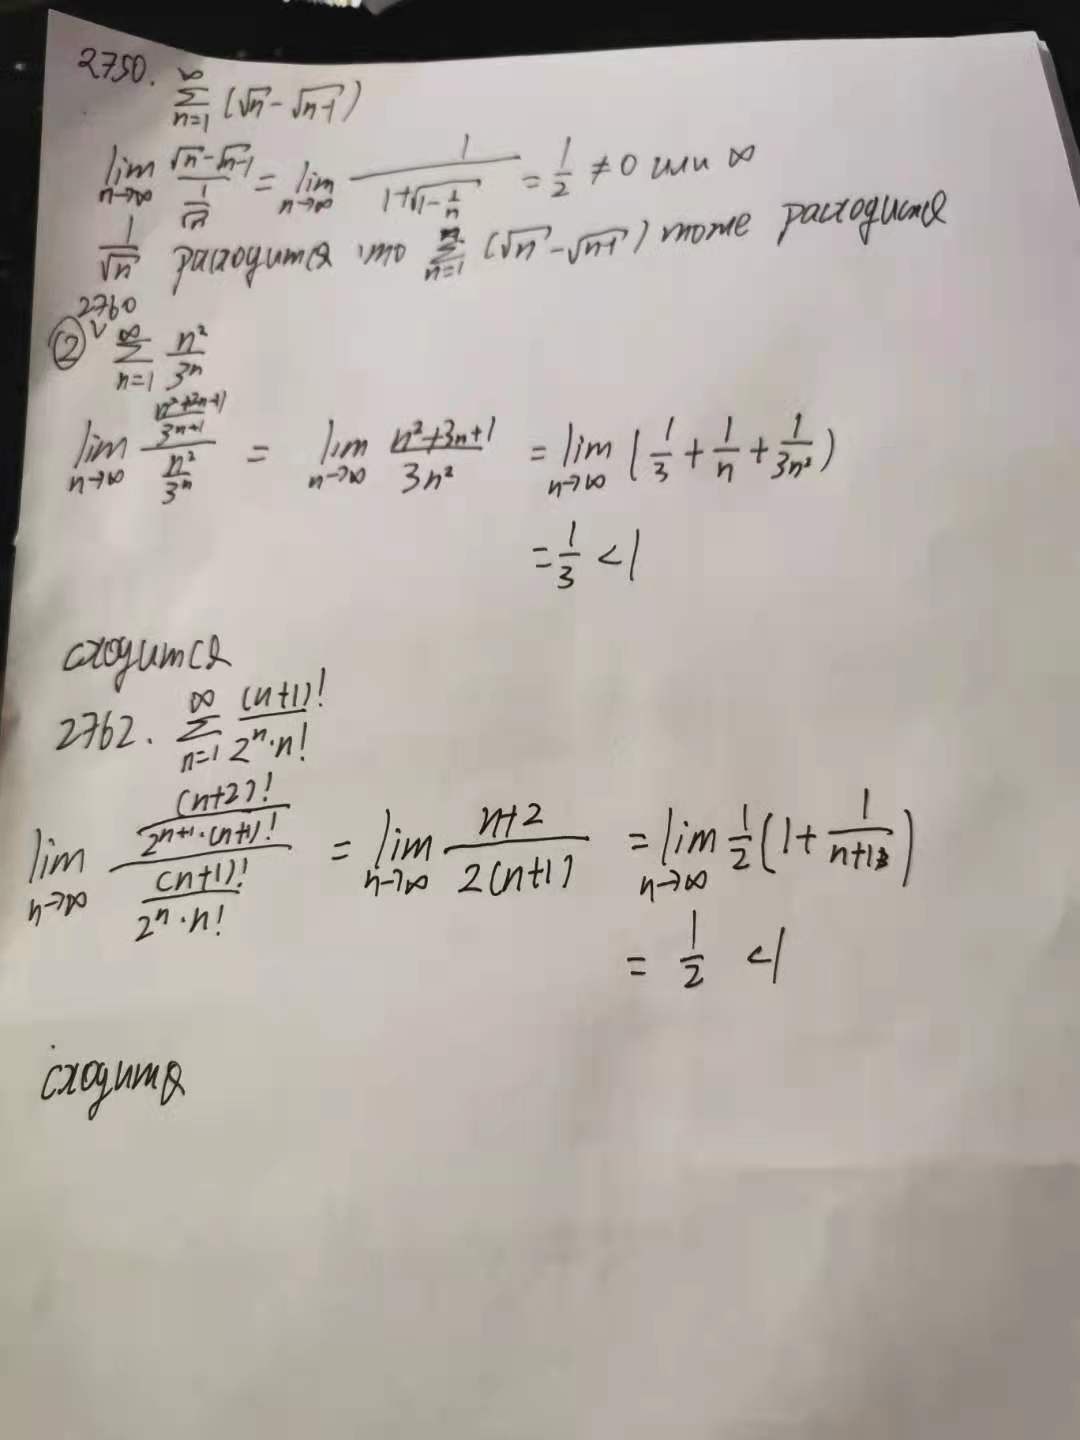 2750. \sum_{n=1}^{\infty} (\sqrt{n} - \sqrt{n-1})
\lim_{n→∞} \frac{\sqrt{n} - \sqrt{n-1}}{\frac{1}{\sqrt{n}}} = \lim_{n→∞} \frac{1}{1+\sqrt{1-\frac{1}{n}}} = \frac{1}{2} ≠ 0 или ∞
\frac{1}{\sqrt{n}} расходится то \sum_{n=1} (\sqrt{n} - \sqrt{n-1}) тоже расходится
2760
② \sum_{n=1}^{∞} \frac{n^2}{3^n}
\lim_{n→∞} \frac{\frac{n^2+2n+1}{3^{n+1}}}{\frac{n^2}{3^n}} = \lim_{n→∞} \frac{n^2+3n+1}{3n^2} = \lim_{n→∞} (\frac{1}{3} + \frac{1}{n} + \frac{1}{3n^2})
= \frac{1}{3} < 1
сходится
2762. \sum_{n=1}^{∞} \frac{(n+1)!}{2^n · n!}
\lim_{n→∞} \frac{\frac{(n+2)!}{2^{n+1} · (n+1)!}}{\frac{(n+1)!}{2^n · n!}} = \lim_{n→∞} \frac{n+2}{2(n+1)} = \lim_{n→∞} \frac{1}{2} (1 + \frac{1}{n+1})
= \frac{1}{2} < 1
сходится